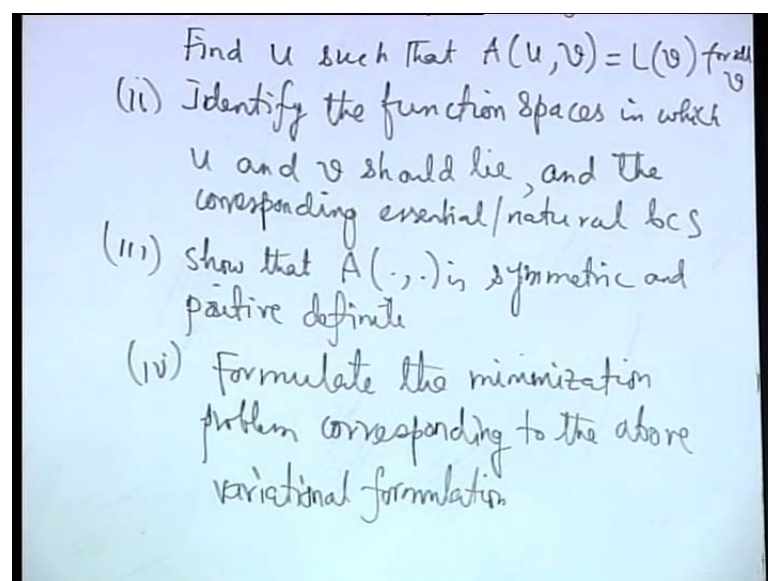 Find u such that A(u,v) = L(v) for all
v
(ii) Identify the function spaces in which
u and v should lie, and the
corresponding essential/natural bcs
(iii) show that A(.,.) is symmetric and
positive definite
(iv) Formulate the minimization
problem corresponding to the above
variational formulation